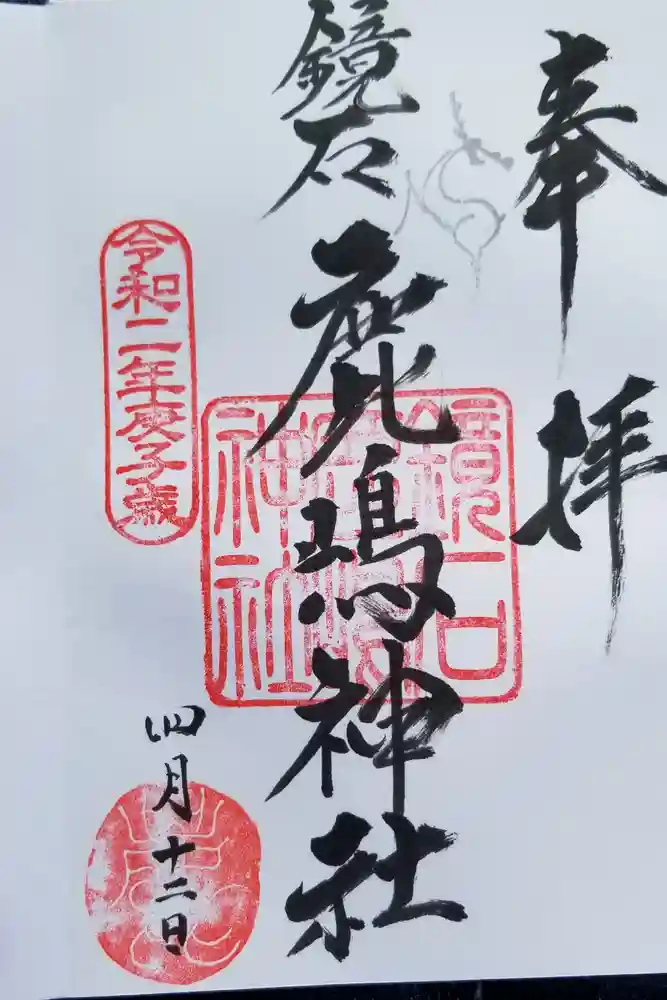 奉拝
鏡石
鹿嶋神社
鏡石
鹿嶋
神社
令和二年庚子歳
四月十二日